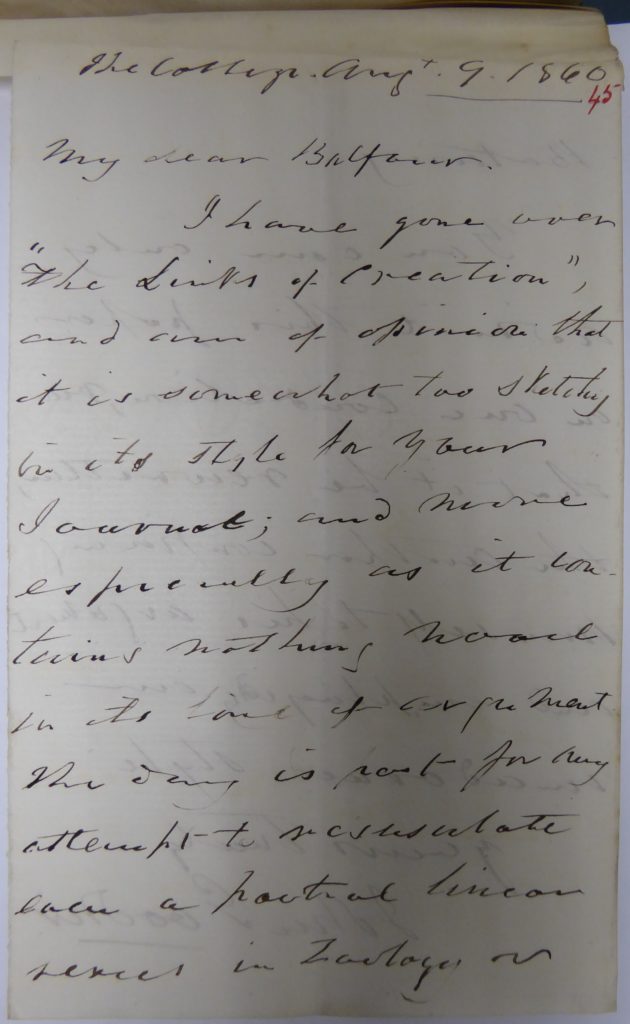 The College. Augt. 9. 1860
45
My dear Balfour.
I have gone over
"The Links of Creation",
and am of opinion that
it is somewhat too sketchy
in its style for your
Journal; and more
especially as it con-
tains nothing novel
in its line of argument
The day is past for any
attempt to resusulate
even a partial linear
series in Zoology or